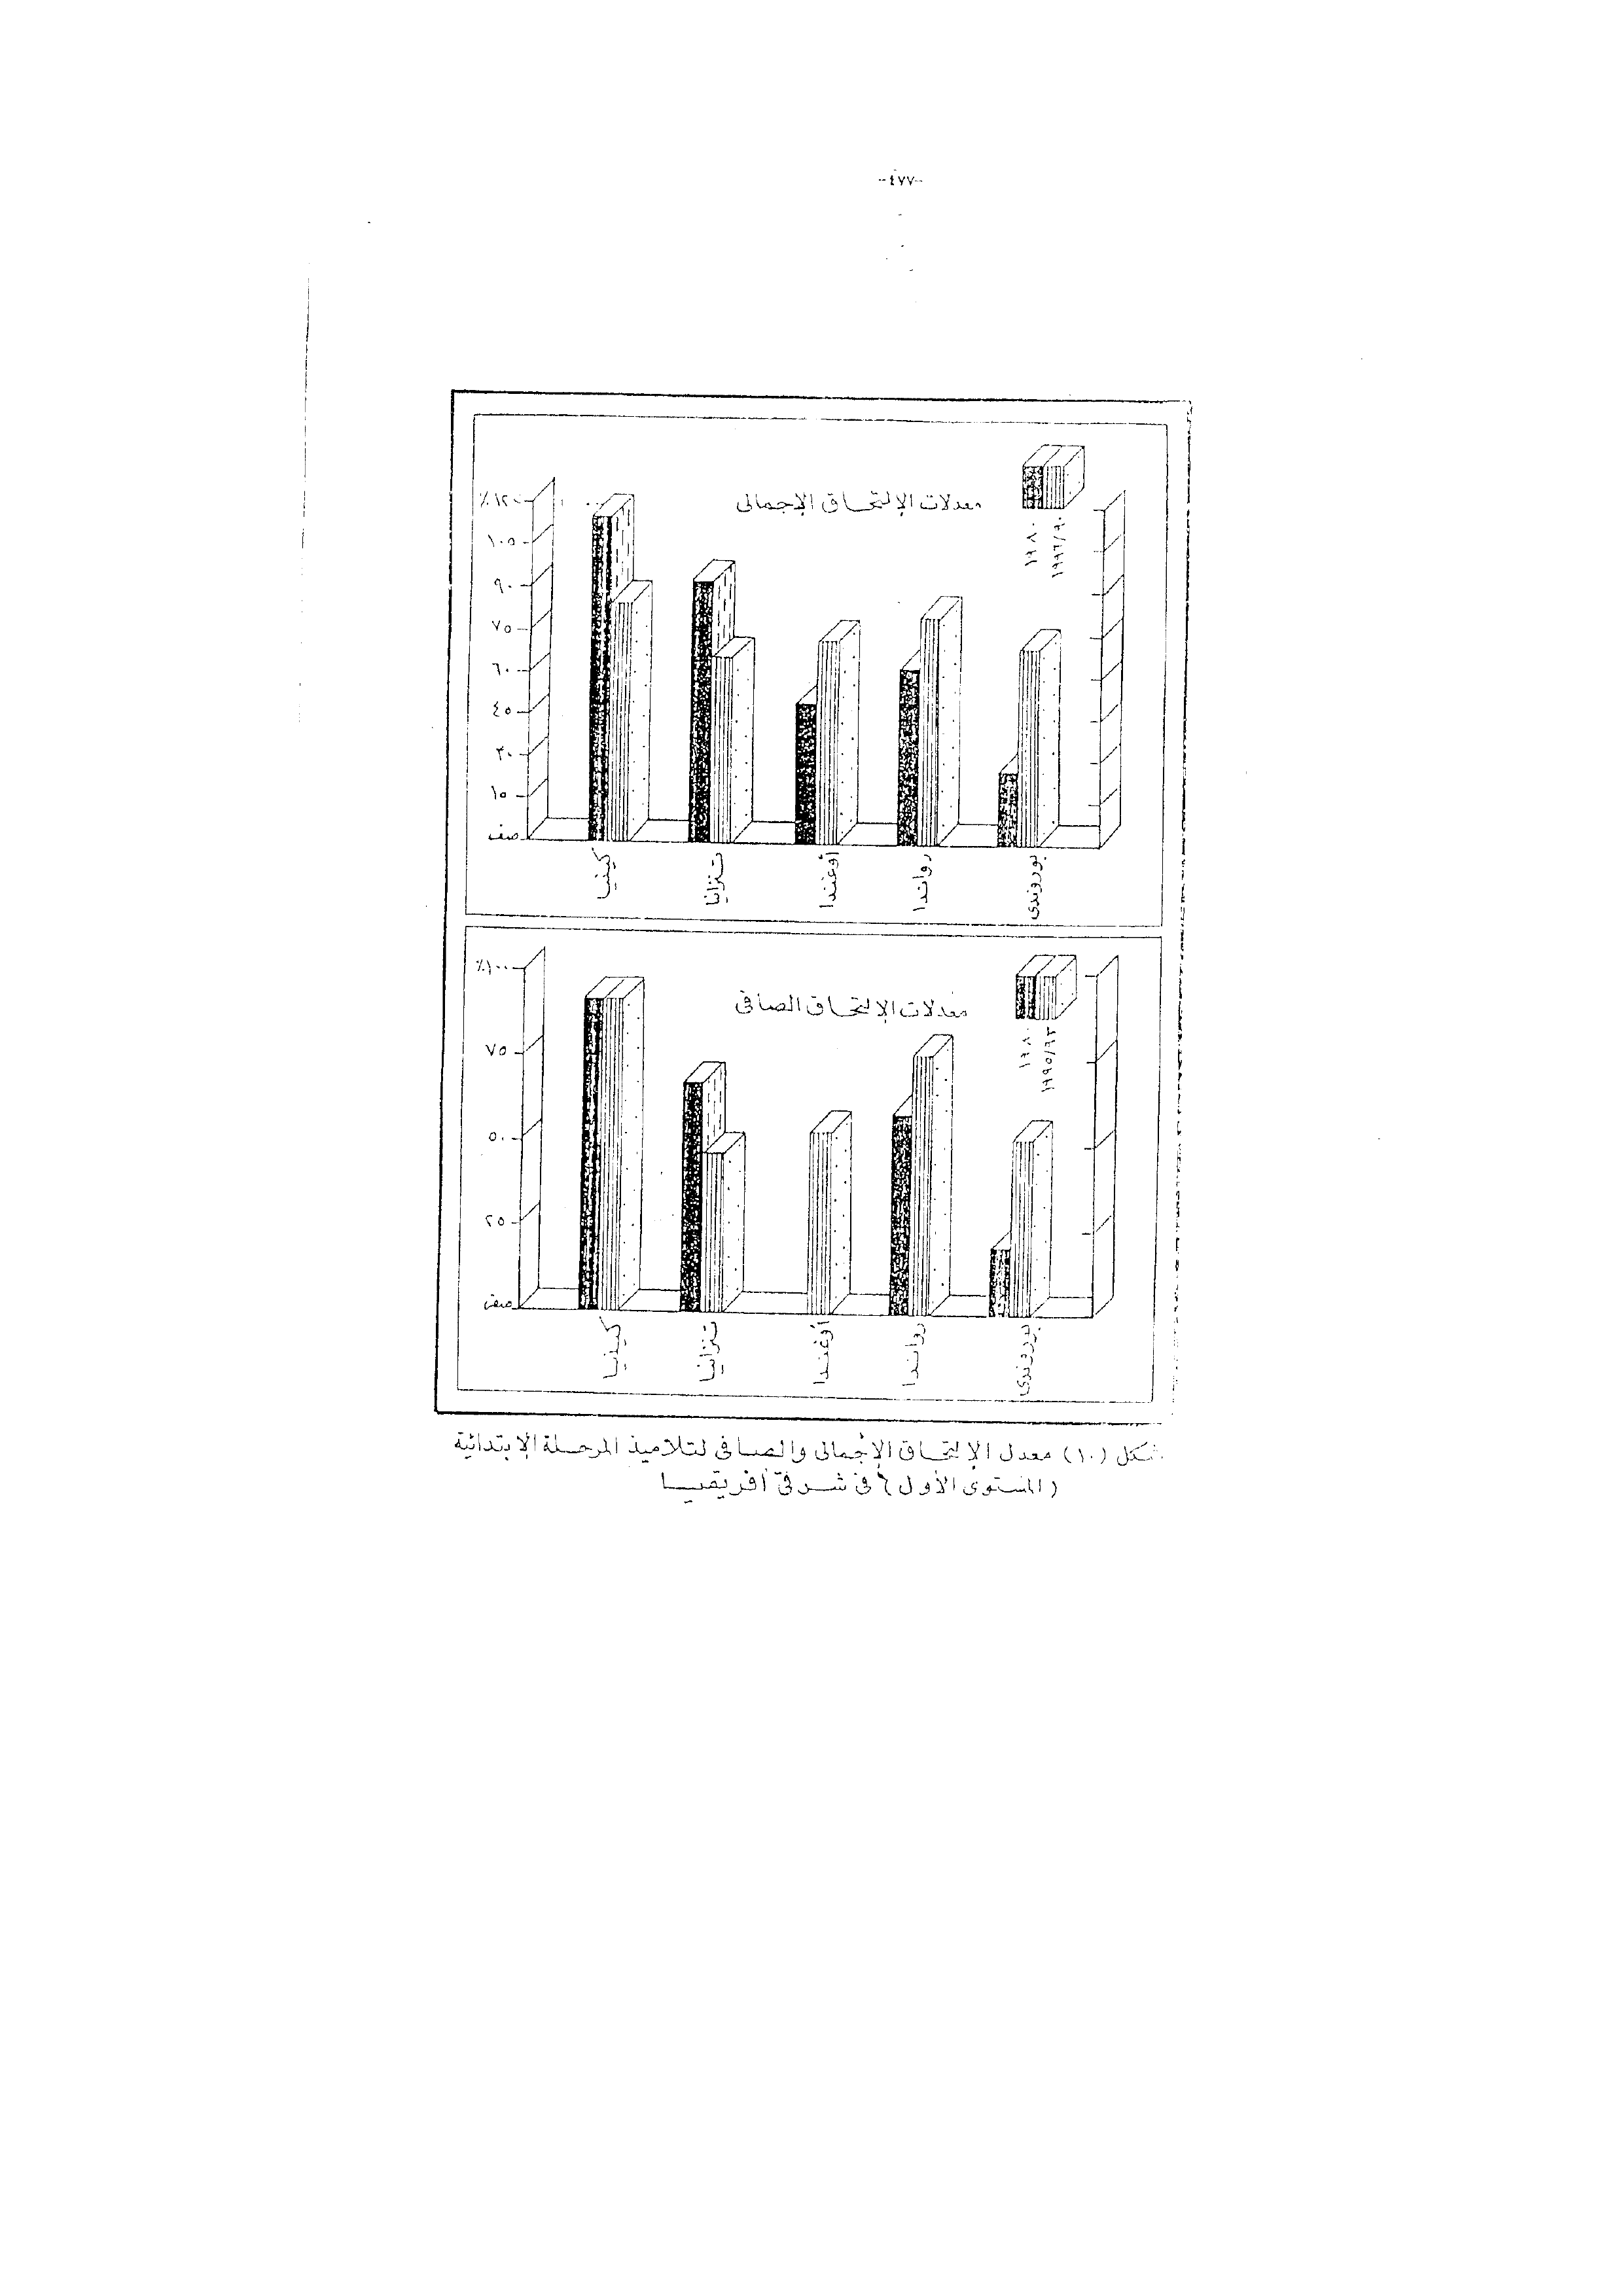 -٤٧٧-
معدلات الإلتحاق الإجمالى
١٩٨٠
١٩٩٦/٩٠
٪١٢٠
١٠٥
٩٠
٧٥
٦٠
٤٥
٣٠
١٥
صفر
كينيا
تنزانيا
أوغندا
رواندا
بوروندى
معدلات الإلتحاق الصافى
١٩٨٠
١٩٩٥/٩٣
٪١٠٠
٧٥
٥٠
٢٥
صفر
كينيا
تنزانيا
أوغندا
رواندا
بوروندى
شكل (١٠) معدل الإلتحاق الإجمالى والصافى لتلاميذ المرحلة الإبتدائية
(المستوى الأول) فى شرقى أفريقيا